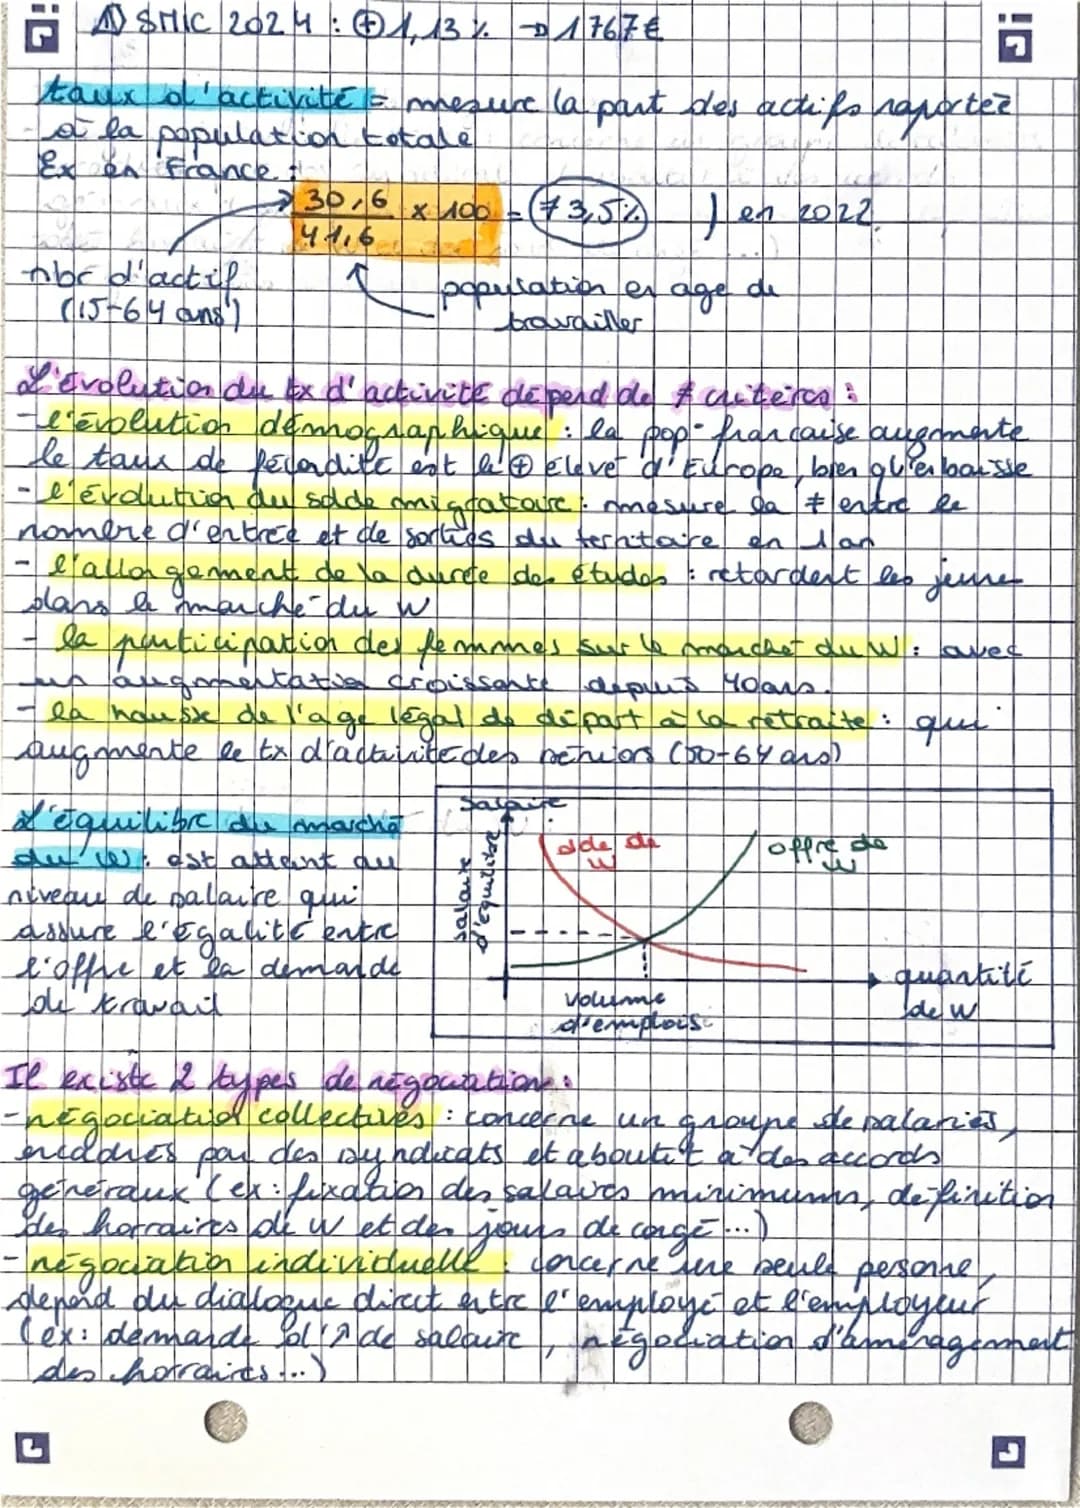 ⚠ SMIC 2024 : ⊕ 1,13 % → 1767€
taux d'activité = mesure la part des actifs raportée
à la population totale
Ex en France :
30,6 / 41,6 x 100 = 73,5% ) en 2022
nbr d'actif
(15-64 ans)
population en age de
travailler
L'évolution du tx d'activité dépend de ≠ critères :
- l'évolution démographique : la pop° française augmente
le taux de fécondité est le ⊕ élevé d'Europe, bien qu'en baisse
- l'évolution du solde migratoire : mesure la ≠ entre le
nombre d'entrée et de sorties du territoire en 1 an
- l'allongement de la durée des études : retardent les jeunes
dans le marché du W
- la participation des femmes sur le marché du W : avec
un augmentation croissante depuis 40ans.
- la hausse de l'age légal de départ à la retraite : qui
augmente le tx d'activité des séniors (50-64 ans)
L'équilibre du marché
du W : est atteint au
niveau de salaire qui
assure l'égalité entre
l'offre et la demande
de travail
Salaire
salaire d'équilibre
dde de W
offre de W
quantité de W
volume
d'emplois
Il existe 2 types de négociation :
- négociation collectives : concerne un groupe de salariés,
encadrés par des syndicats et aboutit à des accords
généraux (ex : fixation des salaires minimums, définition
des horraires de W et des jours de congé ...)
- négociation individuelle : concerne une seule personne,
dépend du dialogue direct entre l'employé et l'employeur
(ex : demande d'↗ de salaire, négociation d'aménagement
des horraires ...)